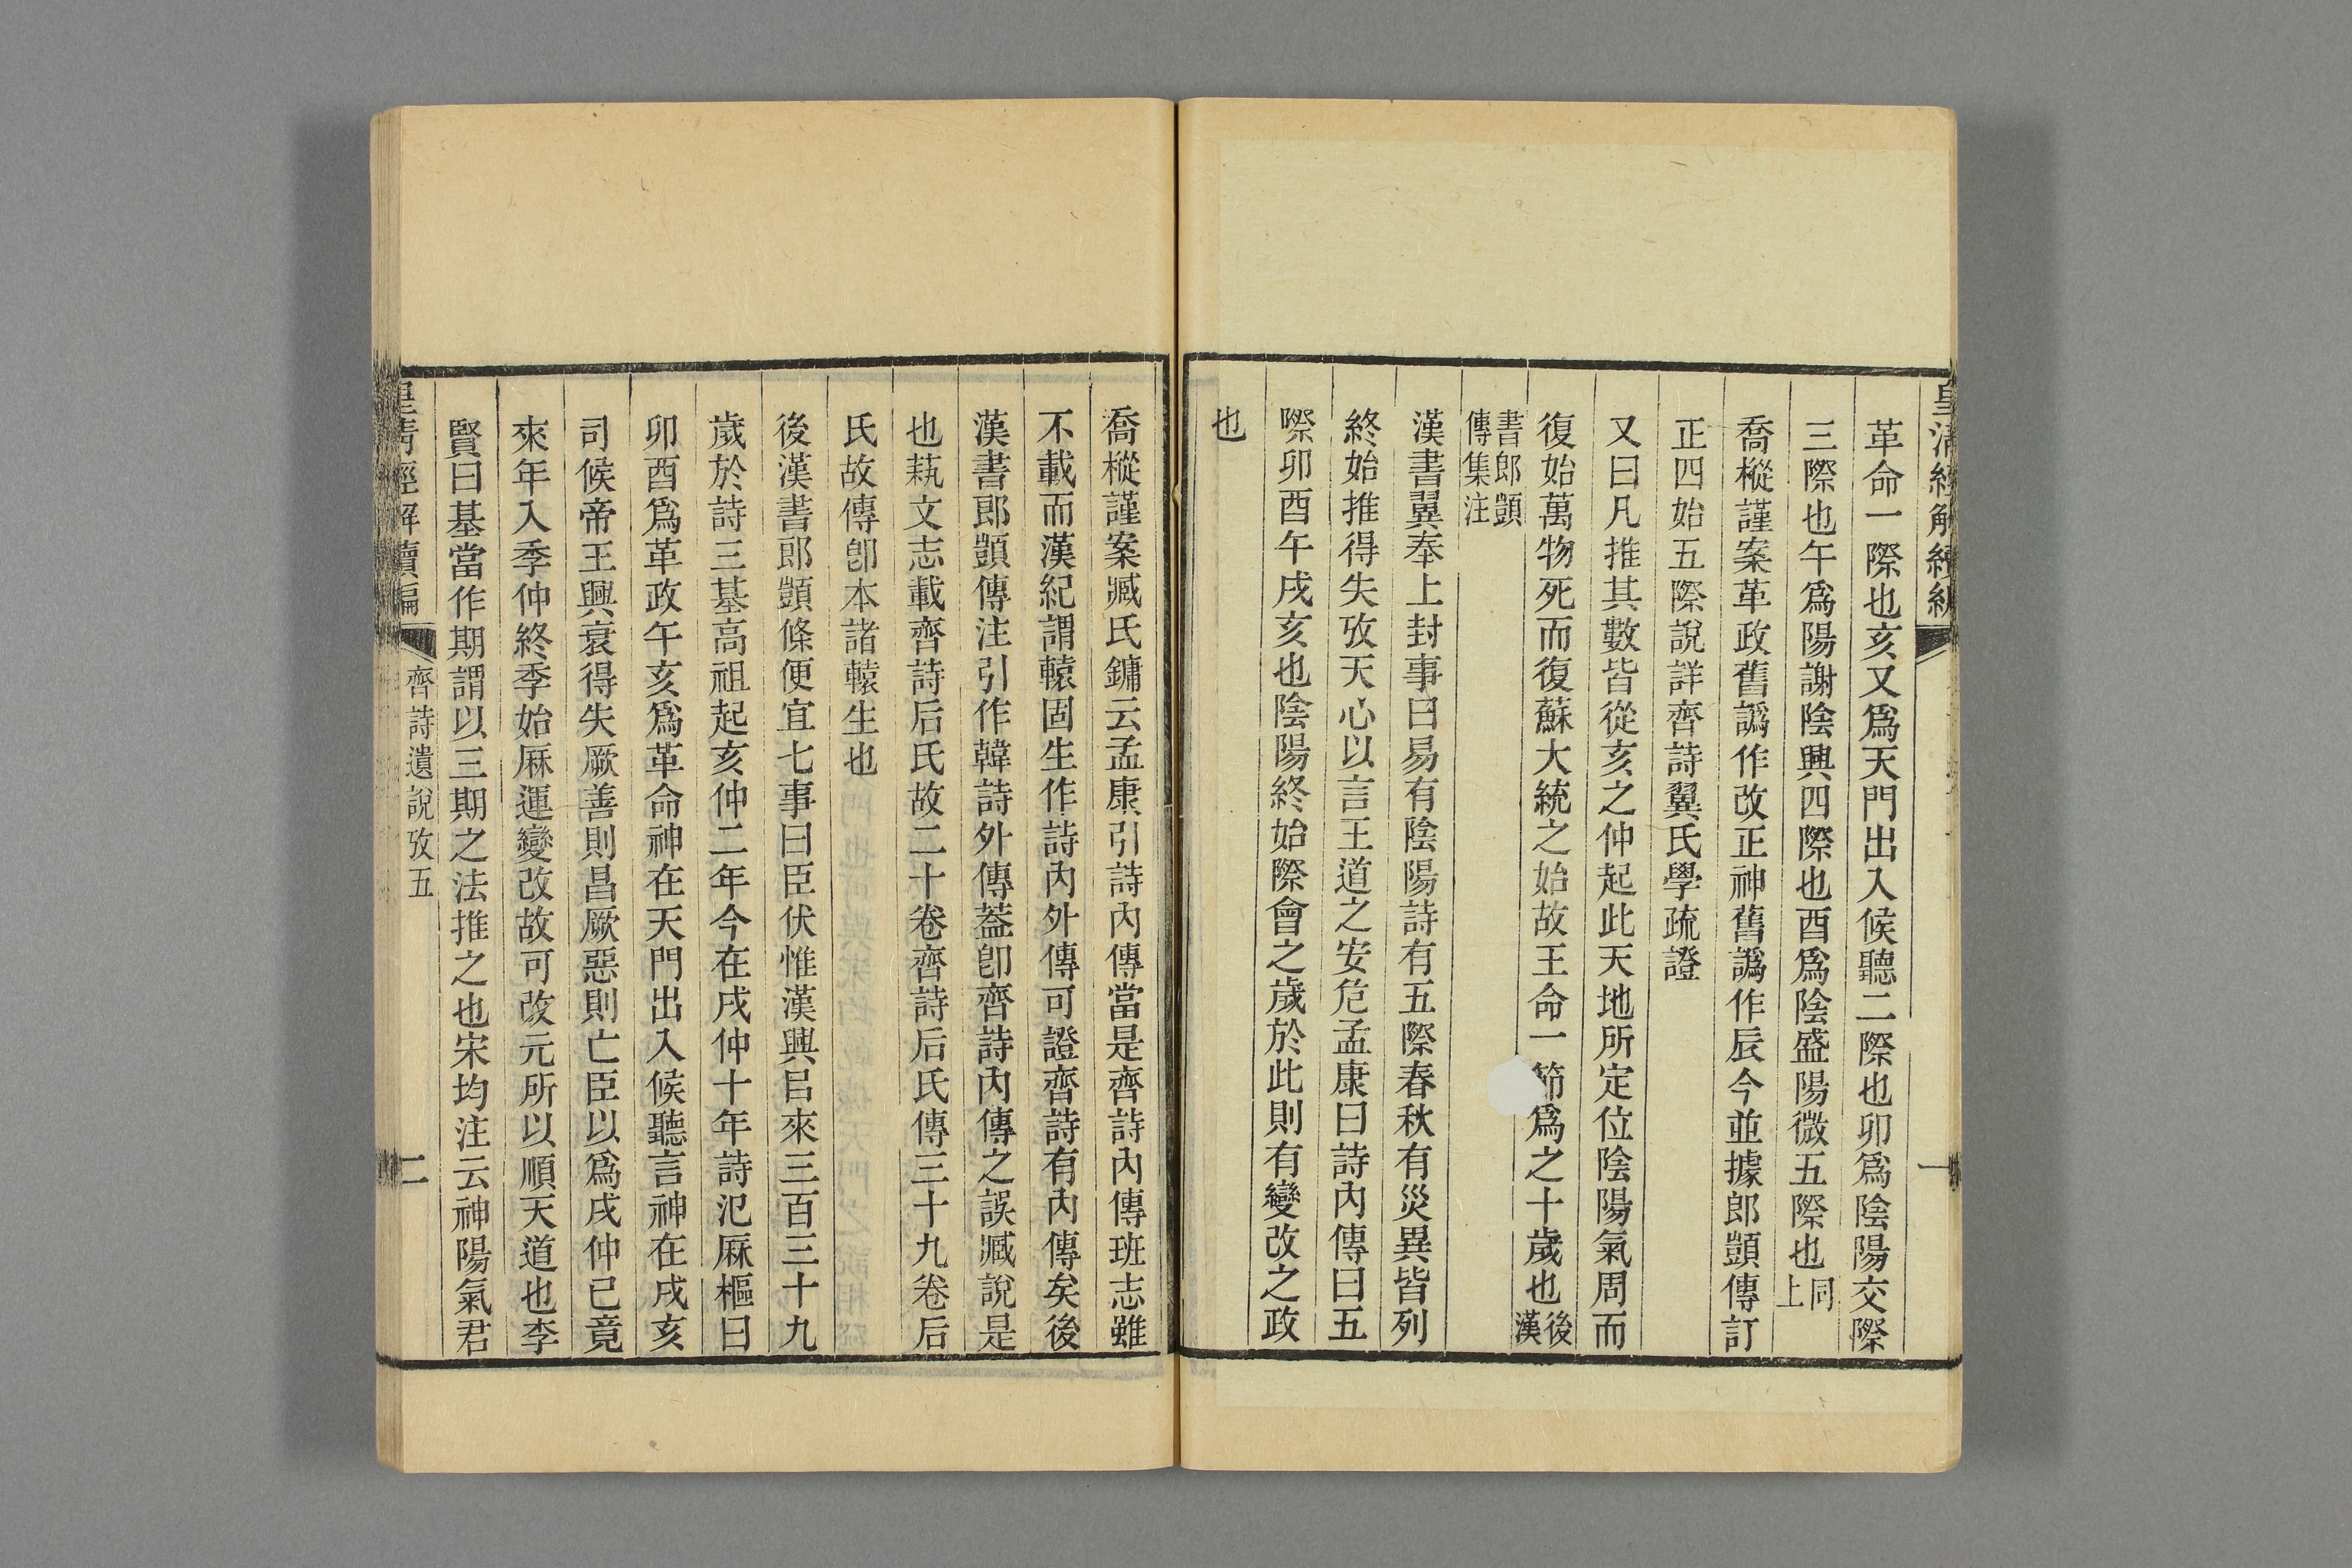 皇清經解續編
一
革命一際也亥又爲天門出入候聽二際也卯爲陰陽交際
三際也午爲陽謝陰興四際也酉爲陰盛陽微五際也同上
喬樅謹案革政舊譌作改正神舊譌作辰今並據郎顗傳訂
正四始五際說詳齊詩翼氏學疏證
又曰凡推其數皆從亥之仲起此天地所定位陰陽氣周而
復始萬物死而復蘇大統之始故王命一節爲之十歲也後漢
書郎顗傳集注
漢書翼奉上封事曰易有陰陽詩有五際春秋有災異皆列
終始推得失攷天心以言王道之安危孟康曰詩內傳曰五
際卯酉午戌亥也陰陽終始際會之歲於此則有變改之政
也
喬樅謹案臧氏鏞云孟康引詩內傳當是齊詩內傳班志雖
不載而漢紀謂轅固生作詩內外傳可證齊詩有內傳矣後
漢書郎顗傳注引作韓詩外傳蓋卽齊詩內傳之誤臧說是
也蓺文志載齊詩后氏故二十卷齊詩后氏傳三十九卷后
氏故傳卽本諸轅生也
後漢書郎顗條便宜七事曰臣伏惟漢興㠯來三百三十九
歲於詩三基高祖起亥仲二年今在戌仲十年詩氾厤樞曰
卯酉爲革政午亥爲革命神在天門出入候聽言神在戌亥
司候帝王興衰得失厥善則昌厥惡則亡臣以爲戌仲已竟
來年入季仲終季始厤運變改故可改元所以順天道也李
賢曰基當作期謂以三期之法推之也宋均注云神陽氣君
皇清經解續編
齊詩遺說攷五
二